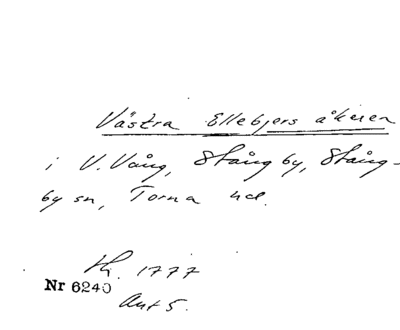 Västra Ellebjers åkren
i V. Vång, Stångby, Stång-
by sn, Torna hd.
Sk. 1777
Nr 6240
Ant 5.